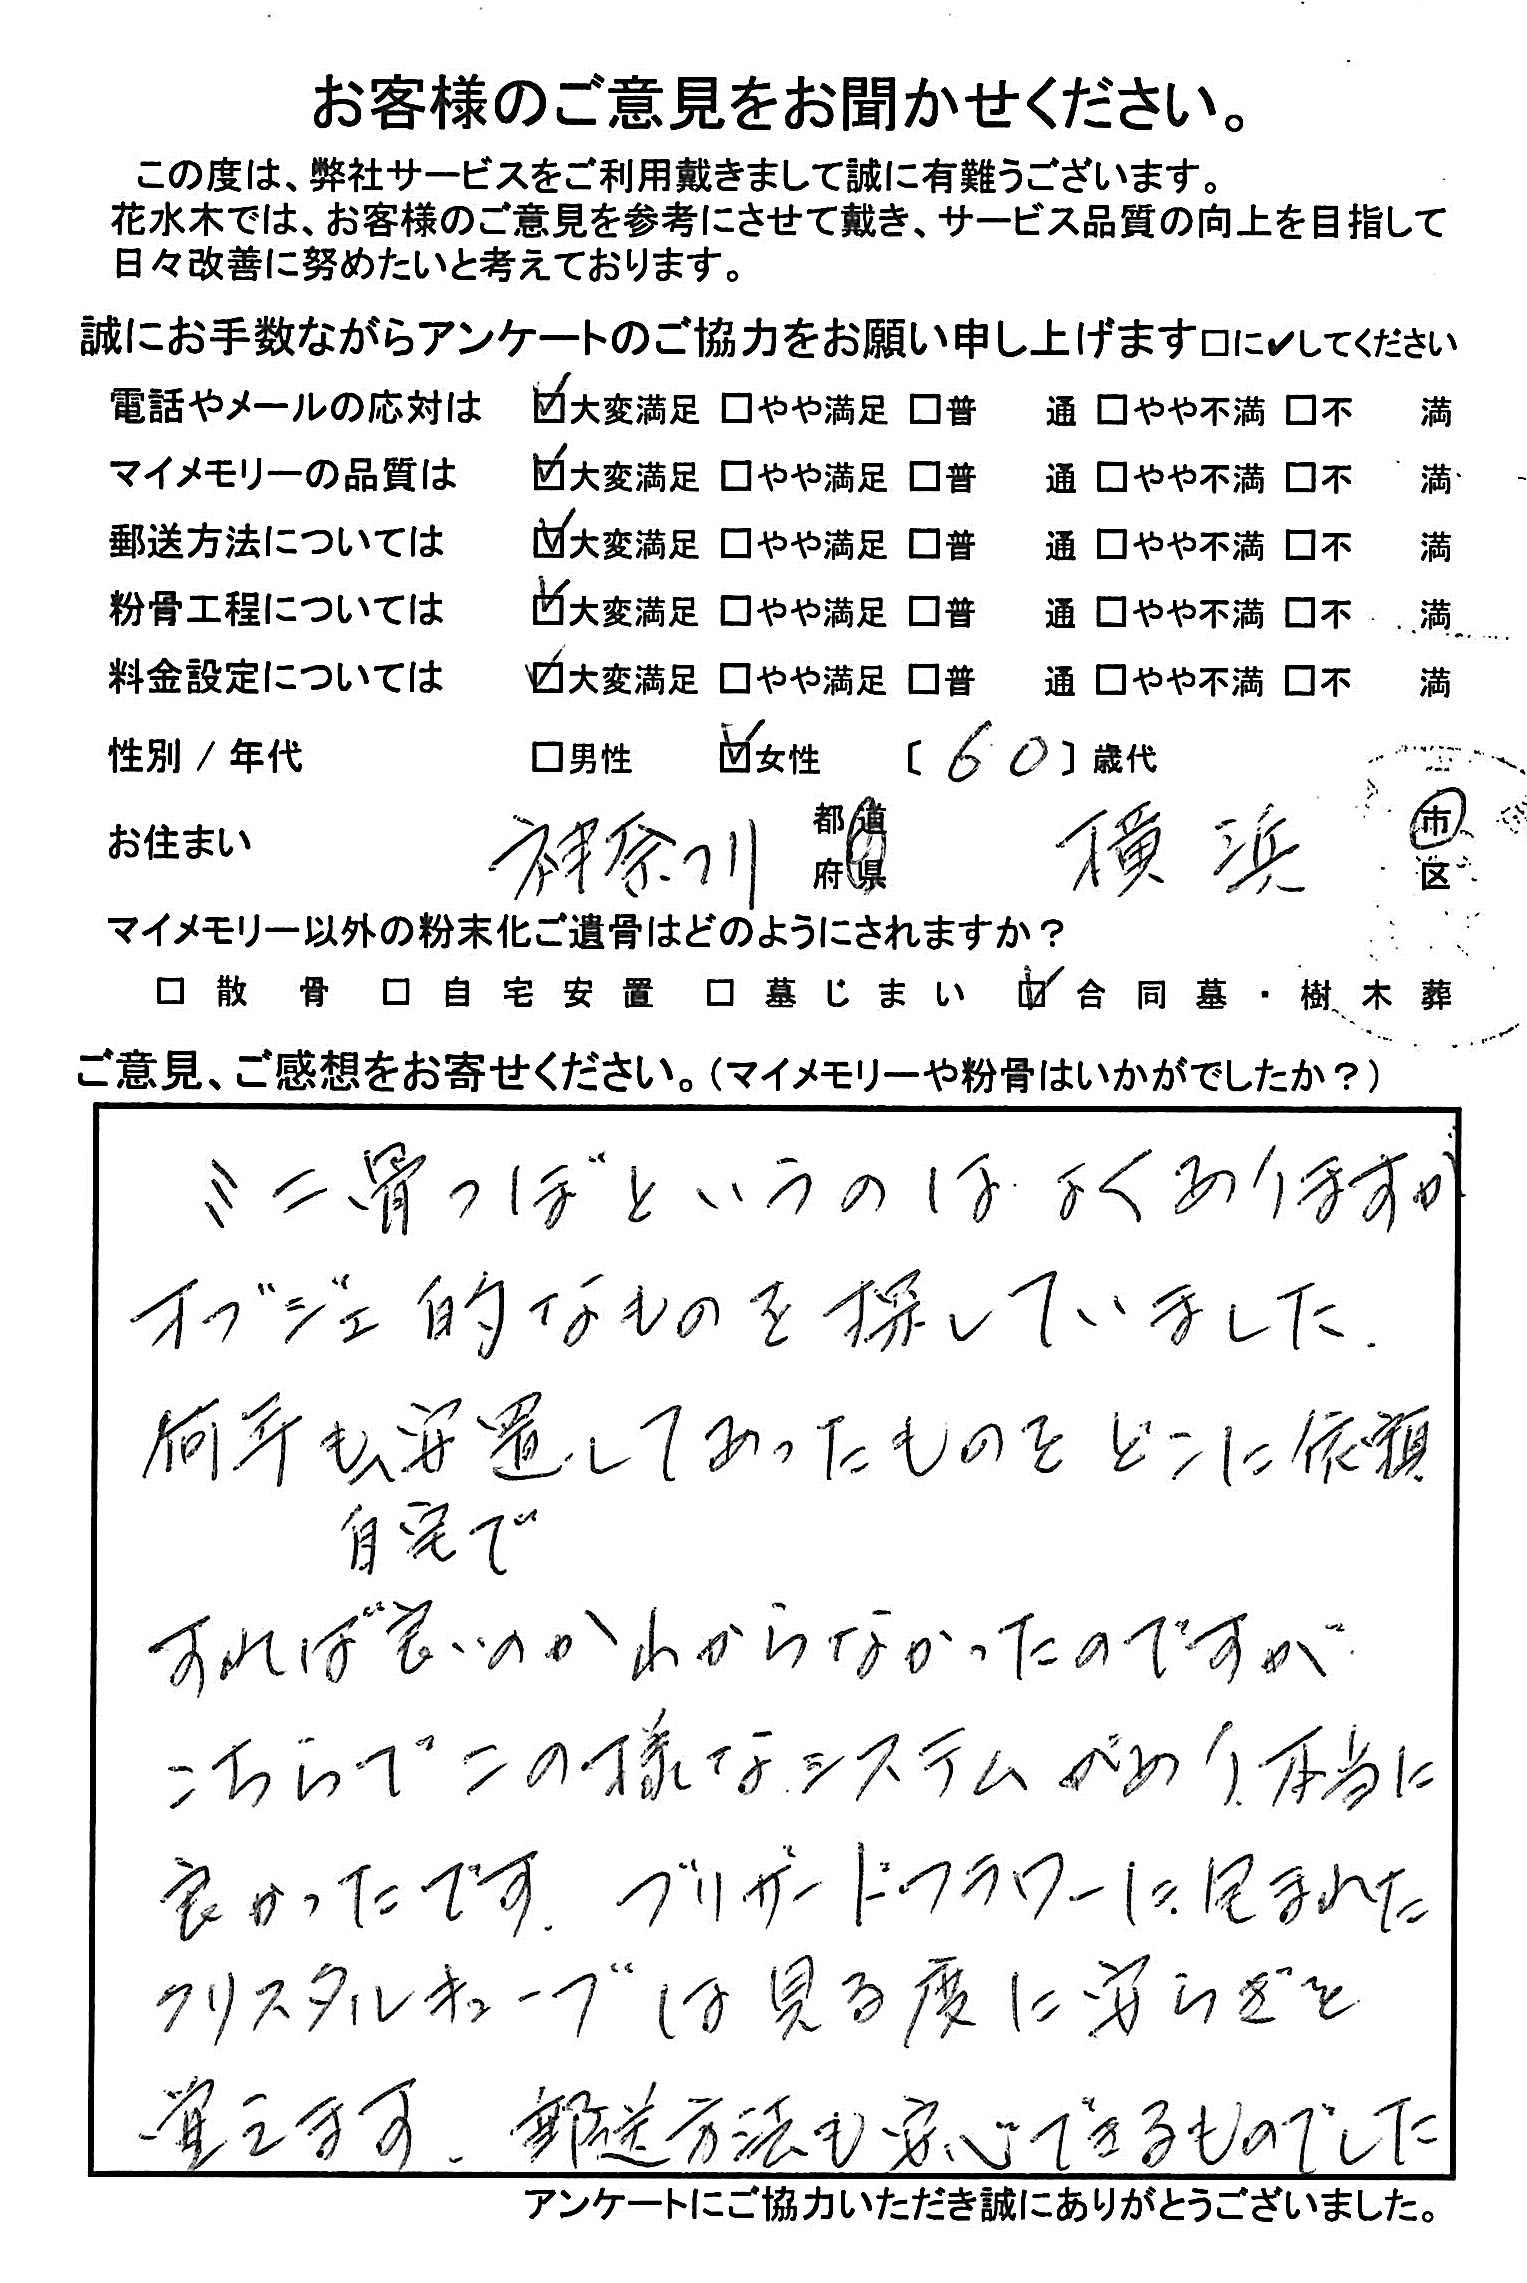 お客様のご意見をお聞かせください。
この度は、弊社サービスをご利用戴きまして誠に有難うございます。
花水木では、お客様のご意見を参考にさせて戴き、サービス品質の向上を目指して
日々改善に努めたいと考えております。
誠にお手数ながらアンケートのご協力をお願い申し上げます□に✔してください
電話やメールの応対は ☑大変満足 □やや満足 □普 通 □やや不満 □不 満
マイメモリーの品質は ☑大変満足 □やや満足 □普 通 □やや不満 □不 満
郵送方法については ☑大変満足 □やや満足 □普 通 □やや不満 □不 満
粉骨工程については ☑大変満足 □やや満足 □普 通 □やや不満 □不 満
料金設定については ☑大変満足 □やや満足 □普 通 □やや不満 □不 満
性別 / 年代 □男性 ☑女性 〔60〕歳代
お住まい 神奈川 都道府県 横浜 市区
マイメモリー以外の粉末化ご遺骨はどのようにされますか？
□ 散 骨 □ 自宅安置 □ 墓じまい ☑ 合同墓・樹木葬
ご意見、ご感想をお寄せください。（マイメモリーや粉骨はいかがでしたか？）
ミニ骨つぼというのはよくありますが
オブジェ的なものを探していました.
何年も安置してあったものをどこに依頼
自宅で
すれば良いのかわからなかったのですが
こちらでこの様なシステムがあり、本当に
良かったです. ブリザードフラワーに包まれた
クリスタルキューブは見る度に安らぎを
覚えます. 郵送方法も安心できるものでした
アンケートにご協力いただき誠にありがとうございました。